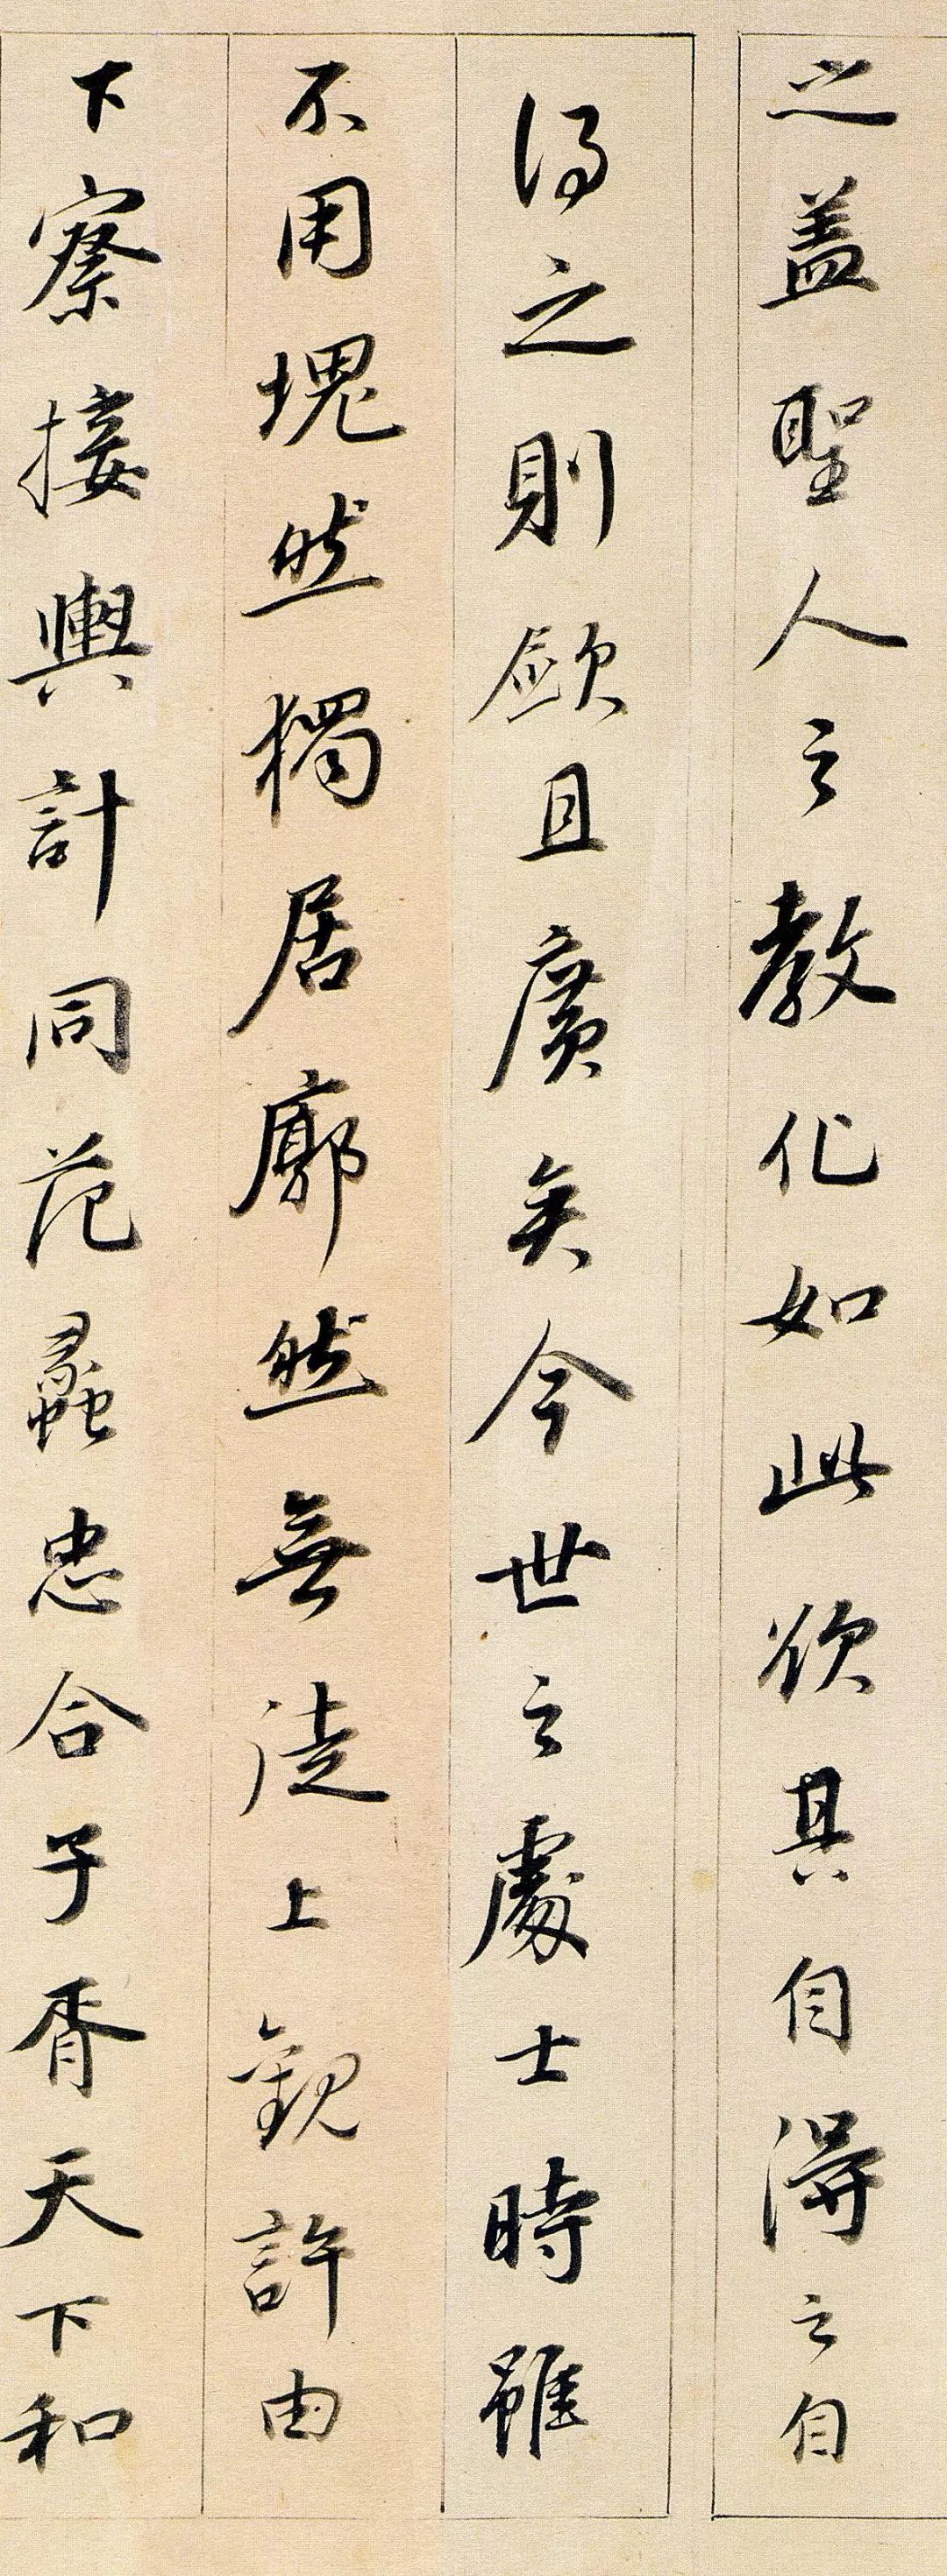 之盖聖人之教化如此欲其自得之自
得之則敏且廣矣今世之處士時雖
不用塊然獨居廓然無徒上觀許由
下察接輿計同范蠡忠合子胥天下和